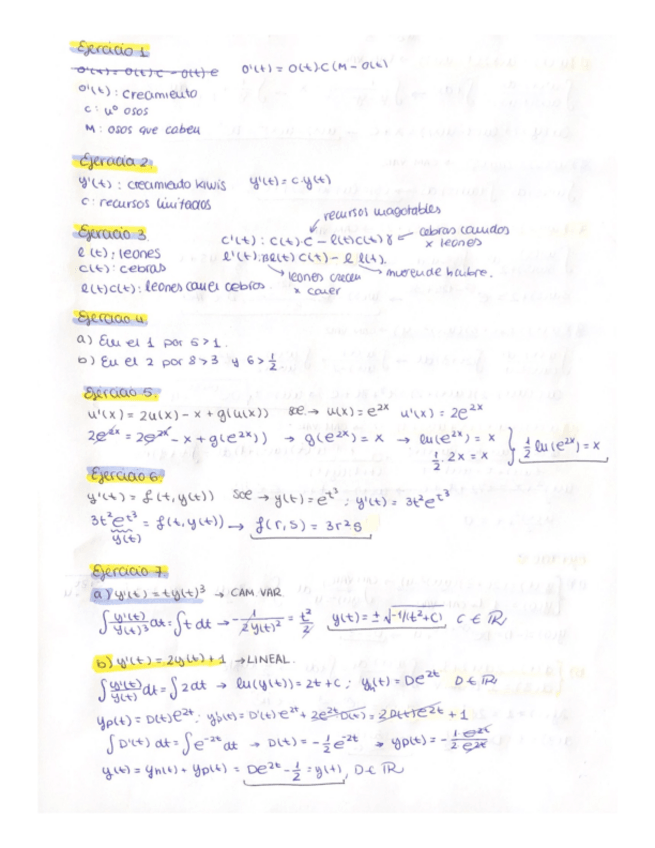 Ejercicio 1
O'(t) = O(t)C - O(t)e   O'(t) = O(t)C(M - O(t)
O'(t): crecimiento
C: nº osos
M: osos que caben
Ejercicio 2.
y'(t): crecimiento kiwis   y'(t) = c·y(t)
C: recursos limitados
recursos inagotables
Ejercicio 3.   c'(t): c(t)·c - l(t)c(t)γ ← cebras comidos x leones
l(t): leones   l'(t): l(t)c(t) - l l(t).
c(t): cebras   leones crecen x comer   mueren de hambre.
l(t)c(t): leones comen cebras.
Ejercicio 4.
a) En el 1 por 5>1.
b) En el 2 por 8>3 y 6>1/2.
Ejercicio 5.
u'(x) = 2u(x) - x + g(u(x))   → u(x) = e^2x   u'(x) = 2e^2x
2e^2x = 2e^2x - x + g(e^2x)) → g(e^2x) = x → ln(e^2x) = x   1/2 ln(e^2x) = x
1/2 · 2x = x
Ejercicio 6.
y'(t) = f(t, y(t))   → y(t) = e^t³; y'(t) = 3t²e^t³
3t²e^t³ = f(t, y(t)) → f(r,s) = 3r²s
y(t)
Ejercicio 7
a) y'(t) = ty(t)³ → CAM. VAR.
∫ y'(t)/y(t)³ dt = ∫ t dt → -1/2y(t)² = t²/2   y(t) = ± √-1/(t²+C)   C ∈ ℝ
b) y'(t) = 2y(t)+1 → LINEAL.
∫ y'(t)/y(t) dt = ∫ 2dt → ln(y(t)) = 2t + C; yh(t) = De^2t   D ∈ ℝ
yp(t) = D(t)e^2t; y'p(t) = D'(t)e^2t + 2e^2t D(t) = 2D(t)e^2t + 1
∫ D'(t) dt = ∫ e^-2t dt → D(t) = -1/2 e^-2t → yp(t) = -1/2 e^2t/e^2t
y(t) = yh(t) + yp(t) = De^2t - 1/2 = y(t), D ∈ ℝ